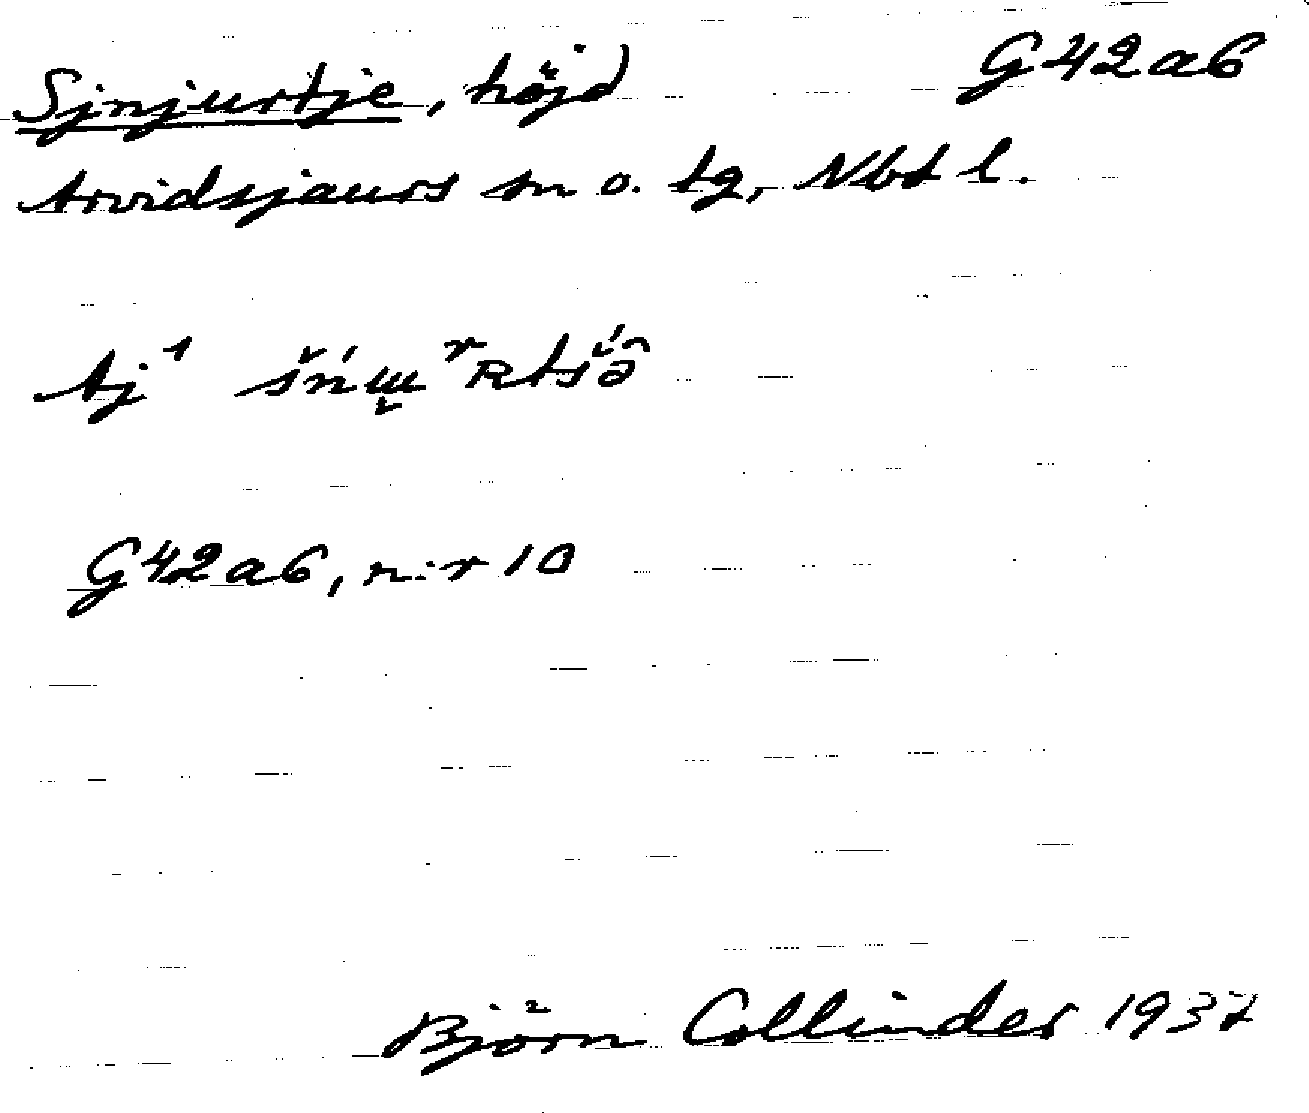 Sjnjurtje, höjd G42a6
Arvidsjaurs sn o. tg, Nbt l.
Aj¹ š́ńɯ̬ʳʀtš́ə̑
G42a6, n:r 10
Björn Collinder 1937